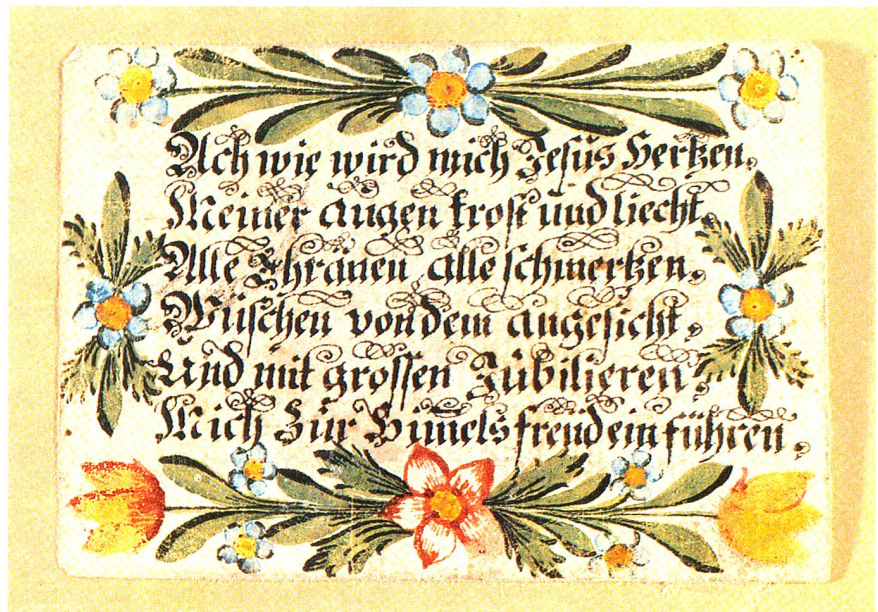 Ach wie wird mich Jesus Hertzen,
Meiner augen trost und liecht,
Alle Thränen alle schmertzen,
Wüschen von dem angesicht,
Und mit grossen Jübilieren
Mich Zür Himelsfreüd einführen.